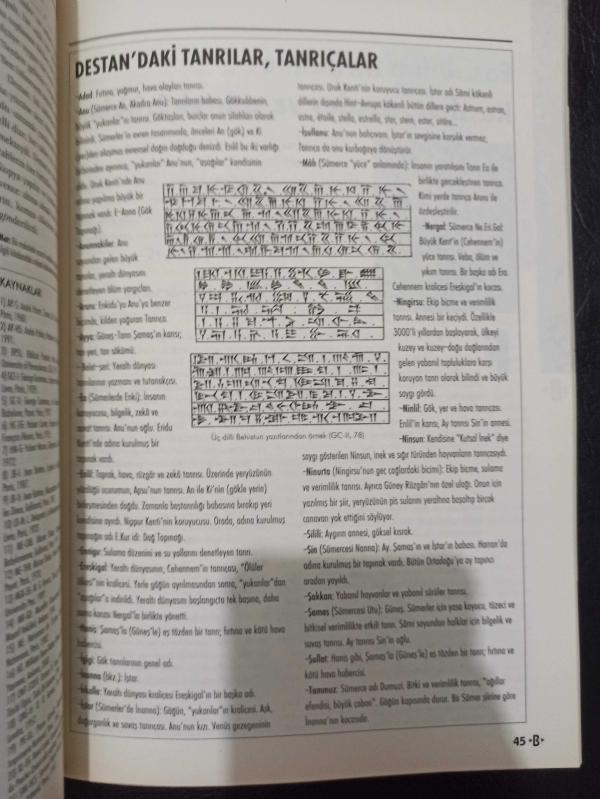 DESTAN'DAKİ TANRILAR, TANRIÇALAR
-Adad: Fırtına, yağmur, hava olayları tanrısı.
-Anu (Sümerce An, Akadca Anu): Tanrıların babası. Gökkubbenin,
büyük "yukarılar"ın tanrısı. Göktaşları, burçlar onun silahları olarak
bilinirdi. Sümerler'in evren tasarımında, önceleri An (gök) ve Ki
(yer)'den oluşmuş evrensel dağın doğduğu denizdi. Enlil bu iki varlığı
birbirinden ayırınca, "yukarılar" Anu'nun, "aşağılar" kendisinin
oldu. Uruk Kenti'nde Anu
adına yapılmış büyük bir
tapınak vardı: E-Anna (Gök
Tapınağı).
-Anunnakiler: Anu
soyundan gelen büyük
tanrılar, yeraltı dünyasını
denetleyen ölüm yargıçları.
-Aruru: Enkidu'yu Anu'ya benzer
biçimde, kilden yoğuran Tanrıça.
-Ayya: Güneş-Tanrı Şamaş'ın karısı;
tan yeri, tan sökümü.
-Belet-seri: Yeraltı dünyası
tanrılarının yazmanı ve tutanakçısı.
-Ea (Sümerlerde Enki): İnsanın
koruyucusu, bilgelik, zekâ ve
sanat tanrısı. Anu'nun oğlu. Eridu
Kenti'nde adına kurulmuş bir
tapınak vardı.
-Enlil: Toprak, hava, rüzgâr ve zekâ tanrısı. Üzerinde yeryüzünün
yüzdüğü uçurumun, Apsu'nun tanrısı. An ile Ki'nin (gökle yerin)
birleşmesinden doğdu. Zamanla baştanrılığı babasına bırakıp yeri
kendisine ayırdı. Nippur Kenti'nin koruyucusu. Orada, adına kurulmuş
tapınağın adı E.Kur idi: Dağ Tapınağı.
-Ennigu: Sulama düzenini ve su yollarını denetleyen tanrı.
-Ereşkigal: Yeraltı dünyasının, Cehennem'in tanrıçası, "Ölüler
ülkesi"nin kraliçesi. Yerle göğün ayrılmasından sonra, "yukarılar"dan
"aşağılar"a indirildi. Yeraltı dünyasını başlangıçta tek başına, daha
sonra kocası Nergal'la birlikte yönetti.
-Haniş: Şamaş'la (Güneş'le) eş tözden bir tanrı; fırtına ve kötü hava
habercisi.
-İgigi: Gök tanrılarının genel adı.
-İnanna (bkz.): İştar.
-İrkalla: Yeraltı dünyası kraliçesi Ereşkigal'ın bir başka adı.
-İştar (Sümerler'de İnanna): Göğün, "yukarılar"ın kraliçesi. Aşk,
doğurganlık ve savaş tanrıçası. Anu'nun kızı. Venüs gezegeninin
Üç dilli Behistun yazıtlarından örnek (GC-II, 78)
tanrıçası. Uruk Kenti'nin koruyucu tanrıçası. İştar adı Sâmi kökenli
dillerin dışında Hint-Avrupa kökenli bütün dillere geçti: Astrum, astron,
astre, étoile, stella, estrella, star, stern, ester, sitâre...
-İşullanu: Anu'nun bahçıvanı. İştar'ın sevgisine karşılık vermez,
Tanrıça da onu kurbağaya dönüştürür.
-Mâh (Sümerce "yüce" anlamında): İnsanın yaratılışını Tanrı Ea ile
birlikte gerçekleştiren tanrıca.
Kimi yerde tanrıça Aruru ile
özdeşleştirilir.
-Nergal: Sümerce Ne.Eri.Gal:
Büyük Kent'in (Cehennem'in)
yüce tanrısı. Veba, ölüm ve
yıkım tanrısı. Bir başka adı Era.
Cehennem kraliçesi Ereşkigal'ın kocası.
-Ningirsu: Ekip biçme ve verimlilik
tanrısı. Annesi bir keçiydi. Özellikle
3000'li yıllardan başlayarak, ülkeyi
kuzey ve kuzey-doğu dağlarından
gelen yabanıl topluluklara karşı
koruyan tanrı olarak bilindi ve büyük
saygı gördü.
-Ninlil: Gök, yer ve hava tanrıçası.
Enlil'in karısı, Ay tanrısı Sin'in annesi.
-Ninsun: Kendisine "Kutsal İnek" diye
saygı gösterilen Ninsun, inek ve sığır türünden hayvanların tanrıçasıydı.
-Ninurta (Ningirsu'nun geç çağlardaki biçimi): Ekip biçme, sulama
ve verimlilik tanrısı. Ayrıca Güney Rüzgârı'nın özel ulağı. Onun için
yazılmış bir şiir, yeryüzünün pis sularını yeraltına boşaltıp birçok
canavarı yok ettiğini söylüyor.
-Silili: Aygırın annesi, göksel kısrak.
-Sin (Sümercesi Nanna): Ay. Şamaş'ın ve İştar'ın babası. Harran'da
adına kurulmuş bir tapınak vardı. Bütün Ortadoğu'ya ay tapıncı
oradan yayıldı.
-Şakkan: Yabanıl hayvanlar ve yabanıl sürüler tanrısı.
-Şamaş (Sümercesi Utu): Güneş. Sümerler için yasa koyucu, tüzeci ve
bitkisel verimlilikte etkili tanrı. Sâmi soyundan halklar için bilgelik ve
savaş tanrısı. Ay tanrısı Sin'in oğlu.
-Şullat: Haniş gibi, Şamaş'la (Güneş'le) eş tözden bir tanrı; fırtına ve
kötü hava habercisi.
-Tammuz: Sümerce adı Dumuzi. Bitki ve verimlilik tanrısı, "ağıllar
efendisi, büyük çoban". Göğün kapısında durur. Bir Sümer şiirine göre
İnanna'nın kocasıdır.
45 •B•
KAYNAKLAR